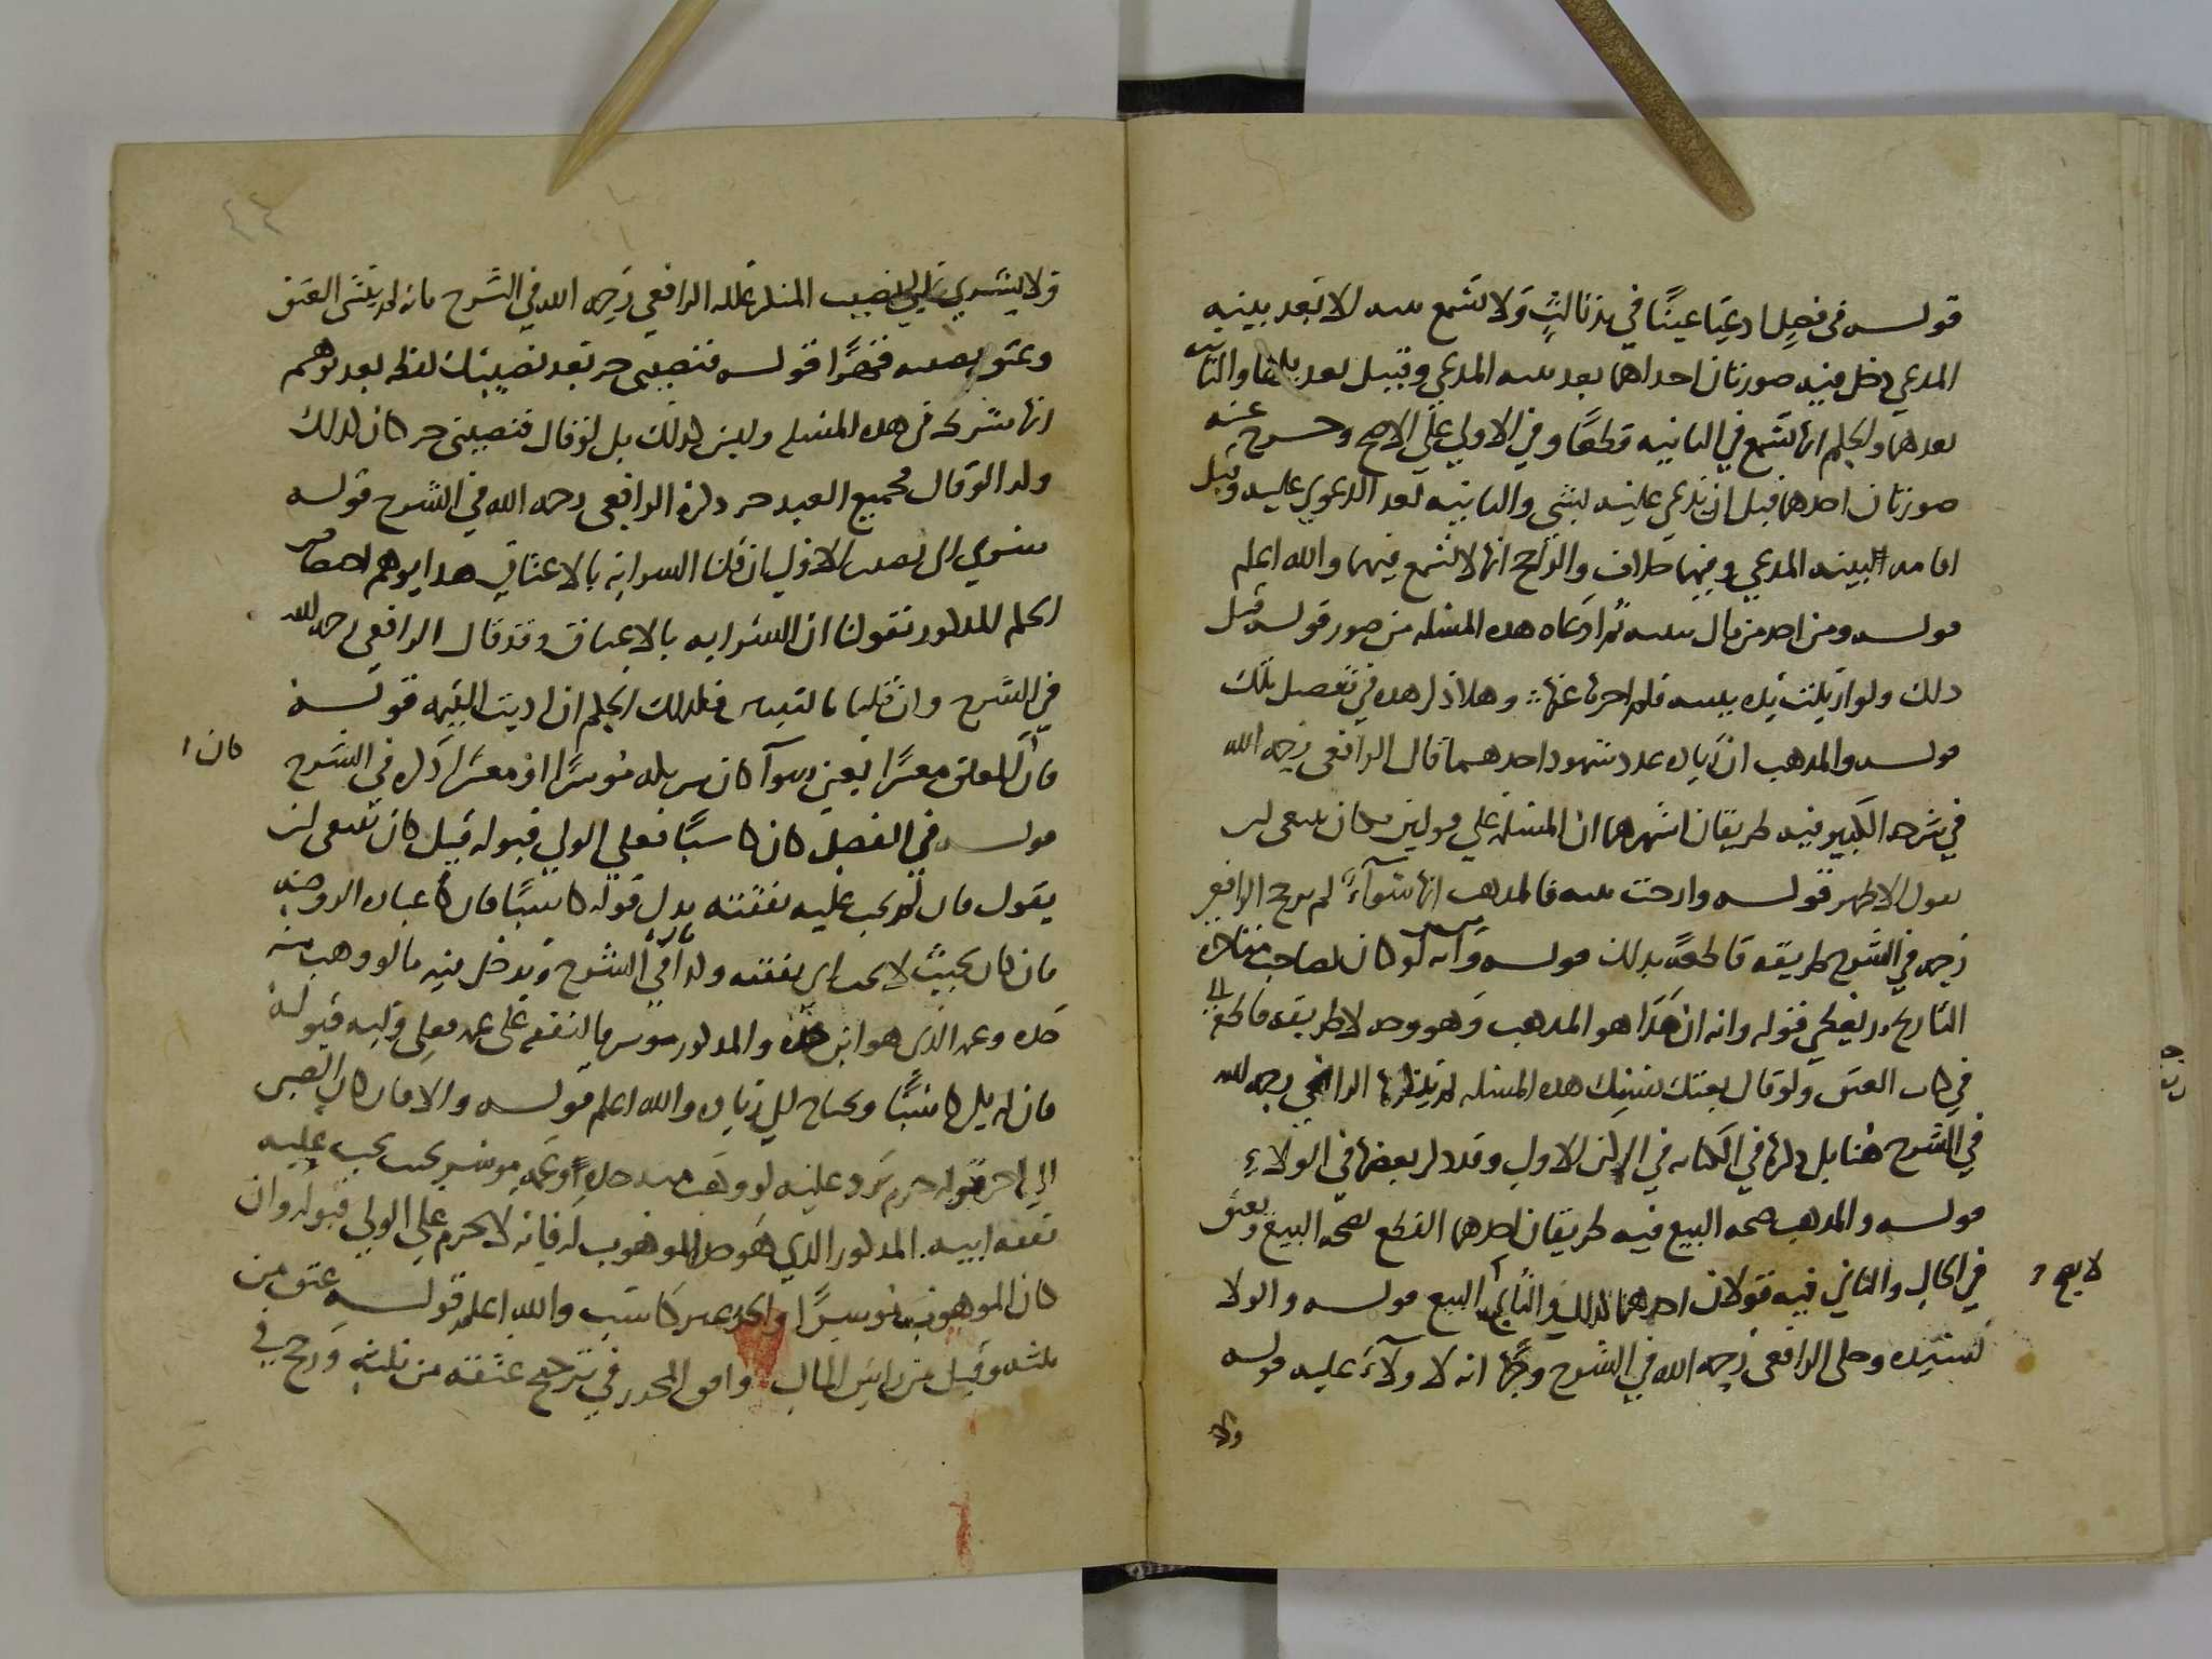 قوله في فصل ادعيا عينا في يد ثالث ولا تسمع بينته الا بعد بينه
المدعي دخل فيه صورتان احداهما بعد بينه المدعي وقبيل تعديلها والثانيه
بعدهما والحكم انها تسمع في الثانيه قطعا وفي الاولي علي الاصح وخرج عنه
صورتان احدهما قبل ان يدعي عليه بشي والثانيه بعد الدعوي عليه وقبل
اقامه البينه المدعي وفيهما خلاف والراجح انها لا تسمع فيهما والله اعلم
قوله ومن اخذ من مال ببينه ثم ادعاه هذه المسئله من صور قوله قبل
ذلك ولو ازيلت يده ببينه فلم اخرها عنها وهلا ذكر هذه في تفصيل تلك
قوله والمذهب ان زياده عدد شهود احدهما قال الرافعي رحمه الله
في شرحه الكبير فيه طريقان اشهرهما ان المسئله علي قولين فكان ينبغي ان
يقول الاظهر قوله وارخت بينه فالمذهب انها سوآء لم يرجح الرافعي
رحمه في الشرح طريقه قاطعه بذلك قوله وانه لو كان لصاحب متاخره
التاريخ يد يعطي قوله وانه ان هذا هو المذهب وهو وجه لا طريقه قاطعه
في كتاب العتق ولو قال بعتك نفسك هذه المسئله لم يذكرها الرافعي رحمه الله
في الشرح هنا بل ذكرها في الكتابه في الركن الاول وقد ذكر بعضها في الولاء
قوله والمذهب صحه البيع فيه طريقان احدهما القطع بصحه البيع ويعتق
في الحال والثاني فيه قولان احدهما كذلك والثاني لا يصح البيع قوله والولا
لسيده وحكي الرافعي رحمه الله في الشرح وجها انه لا ولآء عليه قوله
ولا
لا يصح
ولا يسري الي نصيب المنكر علله الرافعي رحمه الله في الشرح بانه لم ينشئ العتق
وعتق نصيبه قوله فنصيبي حر بعد نصيبك لفظه بعد توهم
انها شرط في هذه المسئله وليس كذلك بل لو قال فنصيبي حر كان كذلك
وكذا لو قال فجميع العبد حر ذكره الرافعي رحمه الله في الشرح قوله
سري الي نصيب الاول ان قلنا السرايه بالاعتاق هذا يوهم اختصاص
الحكم المذكور بقولنا ان السرايه بالاعتاق وقد قال الرافعي رحمه الله
في الشرح وان قلنا بالتبين فكذلك الحكم ان اديت القيمه قوله
فان كان المعلق معسرا يعني وسوآ كان شريكه موسرا او معسرا ذكره في الشرح
قوله في الفصل كان كاسبا فعلي الولي قبوله قيل كان ينبغي ان
يقول فان لم تجب عليه نفقته بدل قوله كاسبا فان عباره الروضه
فان كان بحيث لا تجب نفقته وكذا في الشرح ويدخل فيه ما لو وهب منه
جده وعمه الذي هو ابن جده والمذكور موسر فالنفقه علي عمه فعلي وليه قبوله
فان لم يكن كاسبا ويحتاج الي زياده والله اعلم قوله والا فان كان الصبي
الي اخر قوله حرم يرد عليه لو وهب منه جده وعمه موسر بحيث يجب عليه
نفقه ابيه المذكور الذي هو جد الموهوب له فانه لا يحرم علي الولي قبوله وان
كان الموهوب موسرا والجد غير كاسب والله اعلم قوله عتق من
ثلثه وقيل من راس المال وافق المحرر في ترجيح عتقه من ثلثه ورجح في
كان